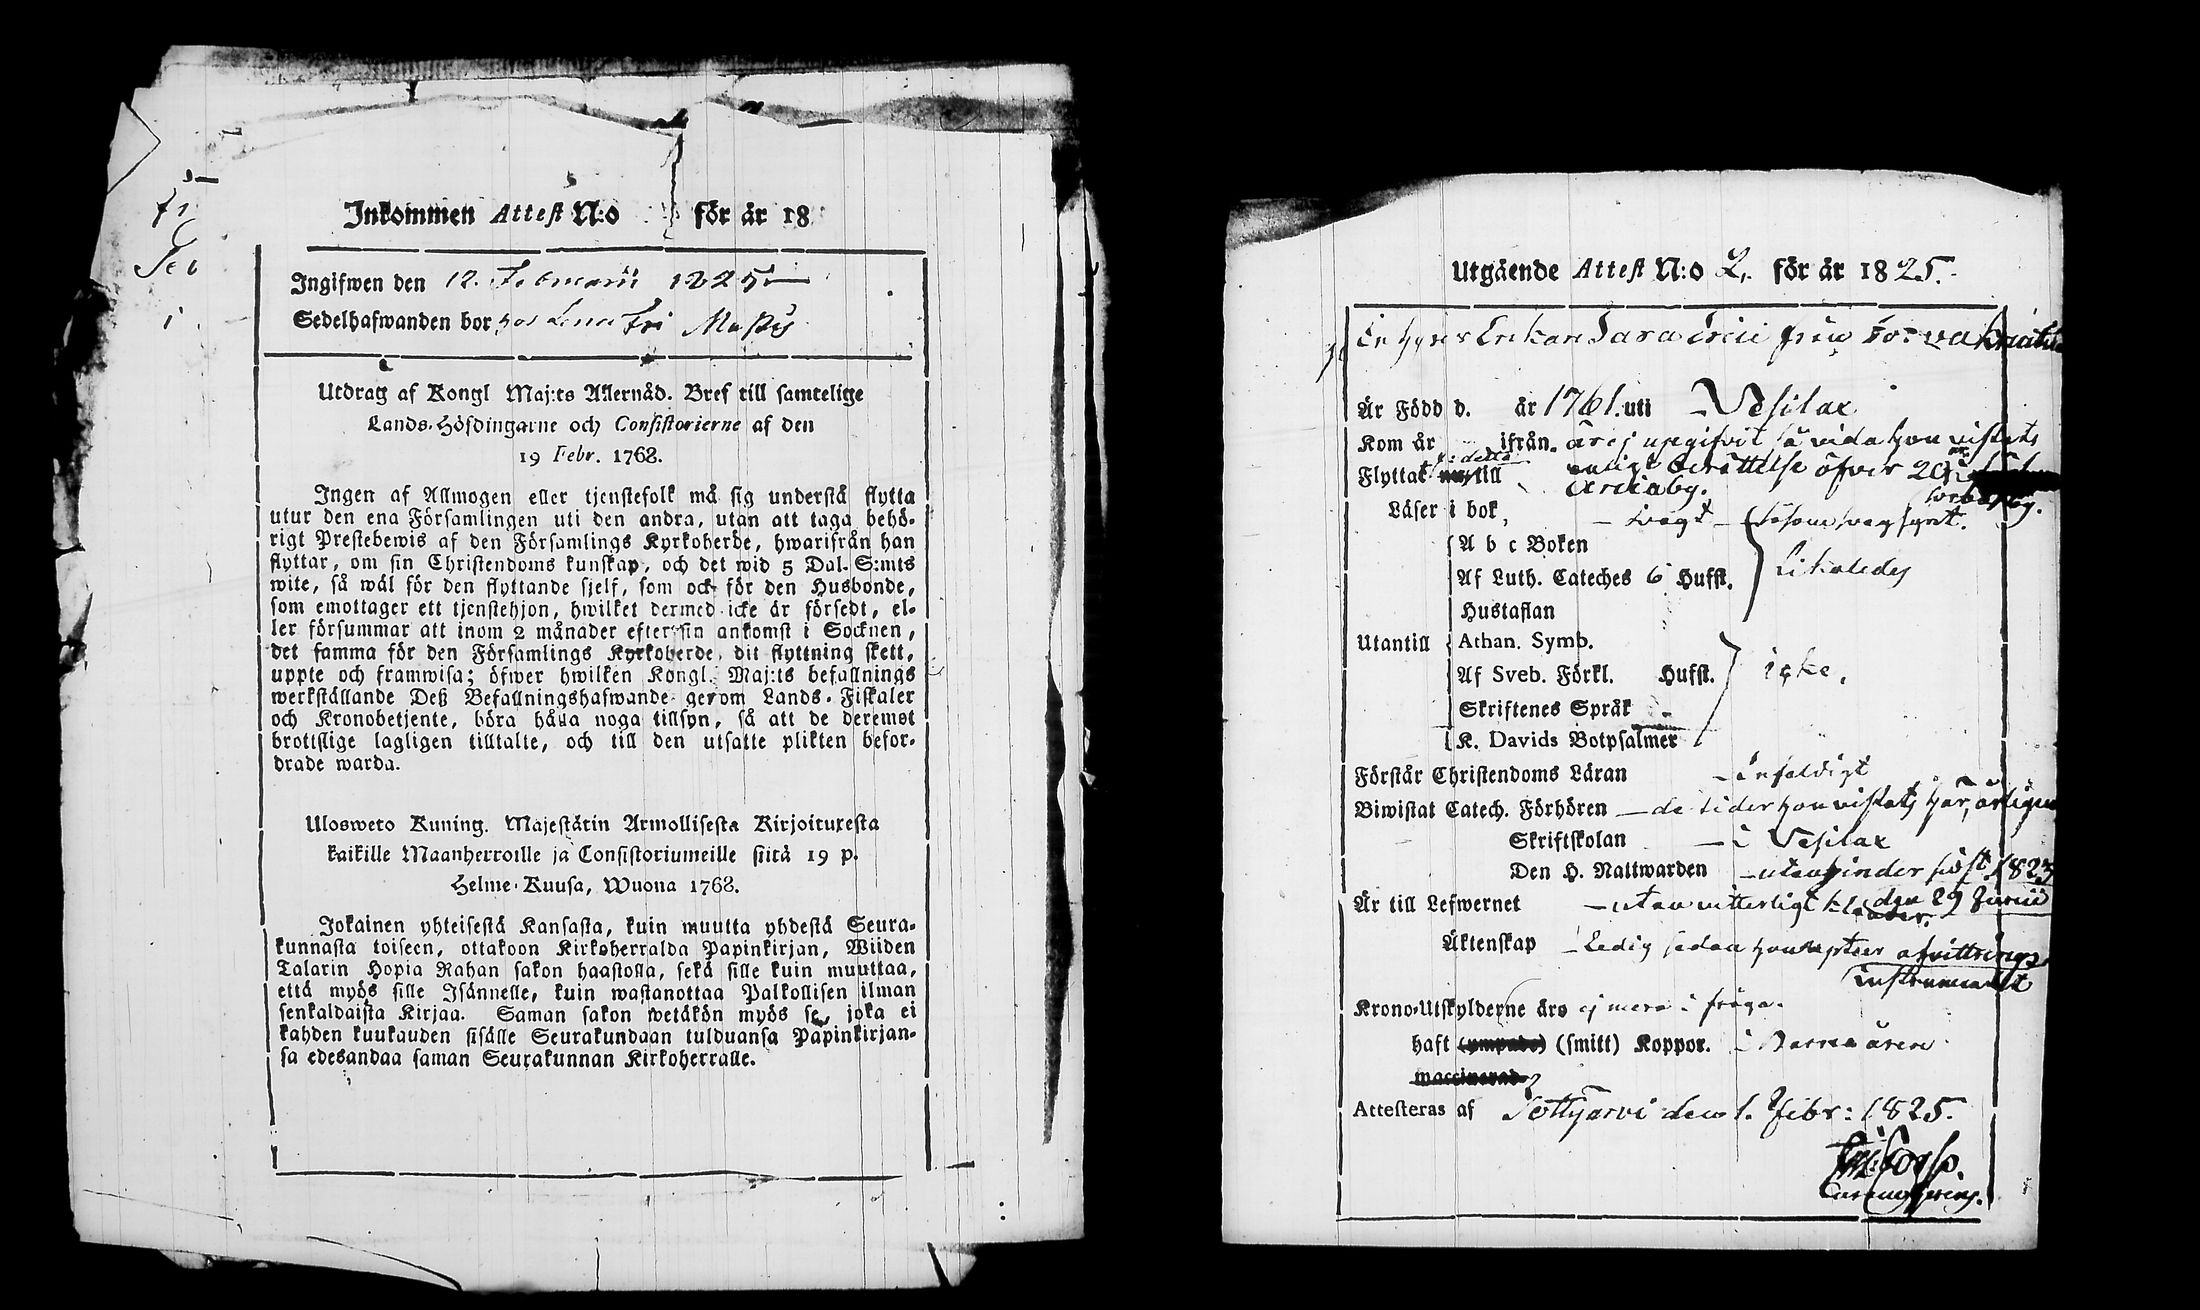 Inkommen Attest N:o för år 18
Ingifwen den 12. Februarii 1825
Sedelhafwanden bor hos Lena
Utdrag af Kongl Maj:ts Allernåd. Bref till samtelige
Lands-Höfdingarne och Consistorierne af den
19 Febr. 1768.
Ingen af Allmogen eller tjenstefolk må sig understå flytta
utur den ena Församlingen uti den andra, utan att taga behö-
rigt Prestebewis af den Församlings Kyrkoherde, hwarifrån han
flyttar, om sin Christendoms kunskap, och det wid 5 Dal. S:mts
wite, så wäl för den flyttande sjelf, som ock för den Husbonde,
som emottager ett tjenstehjon, hwilket dermed icke är försedt, el-
ler försummar att inom 2 månader efter sin ankomst i Socknen,
det samma för den Församlings Kyrkoherde, dit flyttning skett,
uppte och framwisa; öfwer hwilken Kongl. Maj:ts befallnings
werkställande Deß Befallningshafwande genom Lands-Fiskaler
och Kronobetjente, böra hålla noga tillsyn, så att de deremot
brottslige lagligen tilltalte, och till den utsatte plikten befor-
drade warda.
Ulosweto Kuning. Majestätin Armollisesta Kirjoituxesta
kaikille Maanherroille ja Consistoriumeille siitä 19 p.
Helme-Kuusa, Wuona 1768.
Jokainen yhteisestä Kansasta, kuin muutta yhdestä Seura-
kunnasta toiseen, ottakoon Kirkoherralda Papinkirjan, Wiiden
Talarin Hopia Rahan sakon haastolla, sekä sille kuin muuttaa,
että myös sille Isännelle, kuin wastanottaa Palkollisen ilman
senkaldaista Kirjaa. Saman sakon wetäkön myös se, joka ei
kahden kuukauden sisälle Seurakundaan tulduansa Papinkirjan-
sa edesandaa saman Seurakunnan Kirkoherralle.
Utgående Attest N:o 2. för år 1825.
Enkan Sara
Är Född d. år 1761. uti Vesilax
Kom år ifrån. är ej uppgifvit så vida hon vistats
Flyttat till enligt berättelse öfver 20 år
Läser i bok, svagt såsom svagsynt.
A b c Boken
Af Luth. Cateches 6 Hufst. Likaledes
Hustaflan
Utantill Athan. Symb.
Af Sveb. Förkl. Hufst. icke.
Skriftenes Språk
K. Davids Botpsalmer
Förstår Christendoms Läran enfaldigt
Biwistat Catech. Förhören de tider hon vistats här, årligen
Skriftskolan i Vesilax
Den H. Nattwarden utan hinder sist 1823
den 29 Junii
Är till Lefwernet utan vitterligt klander.
Äktenskap Ledig sedan hon afvittrings
instrument
Krono-Utskylderne äro ej mera i fråga.
haft (smitt) Koppor. i Barnaåren
Attesteras af Pöttjärvi den 1. Febr: 1825.